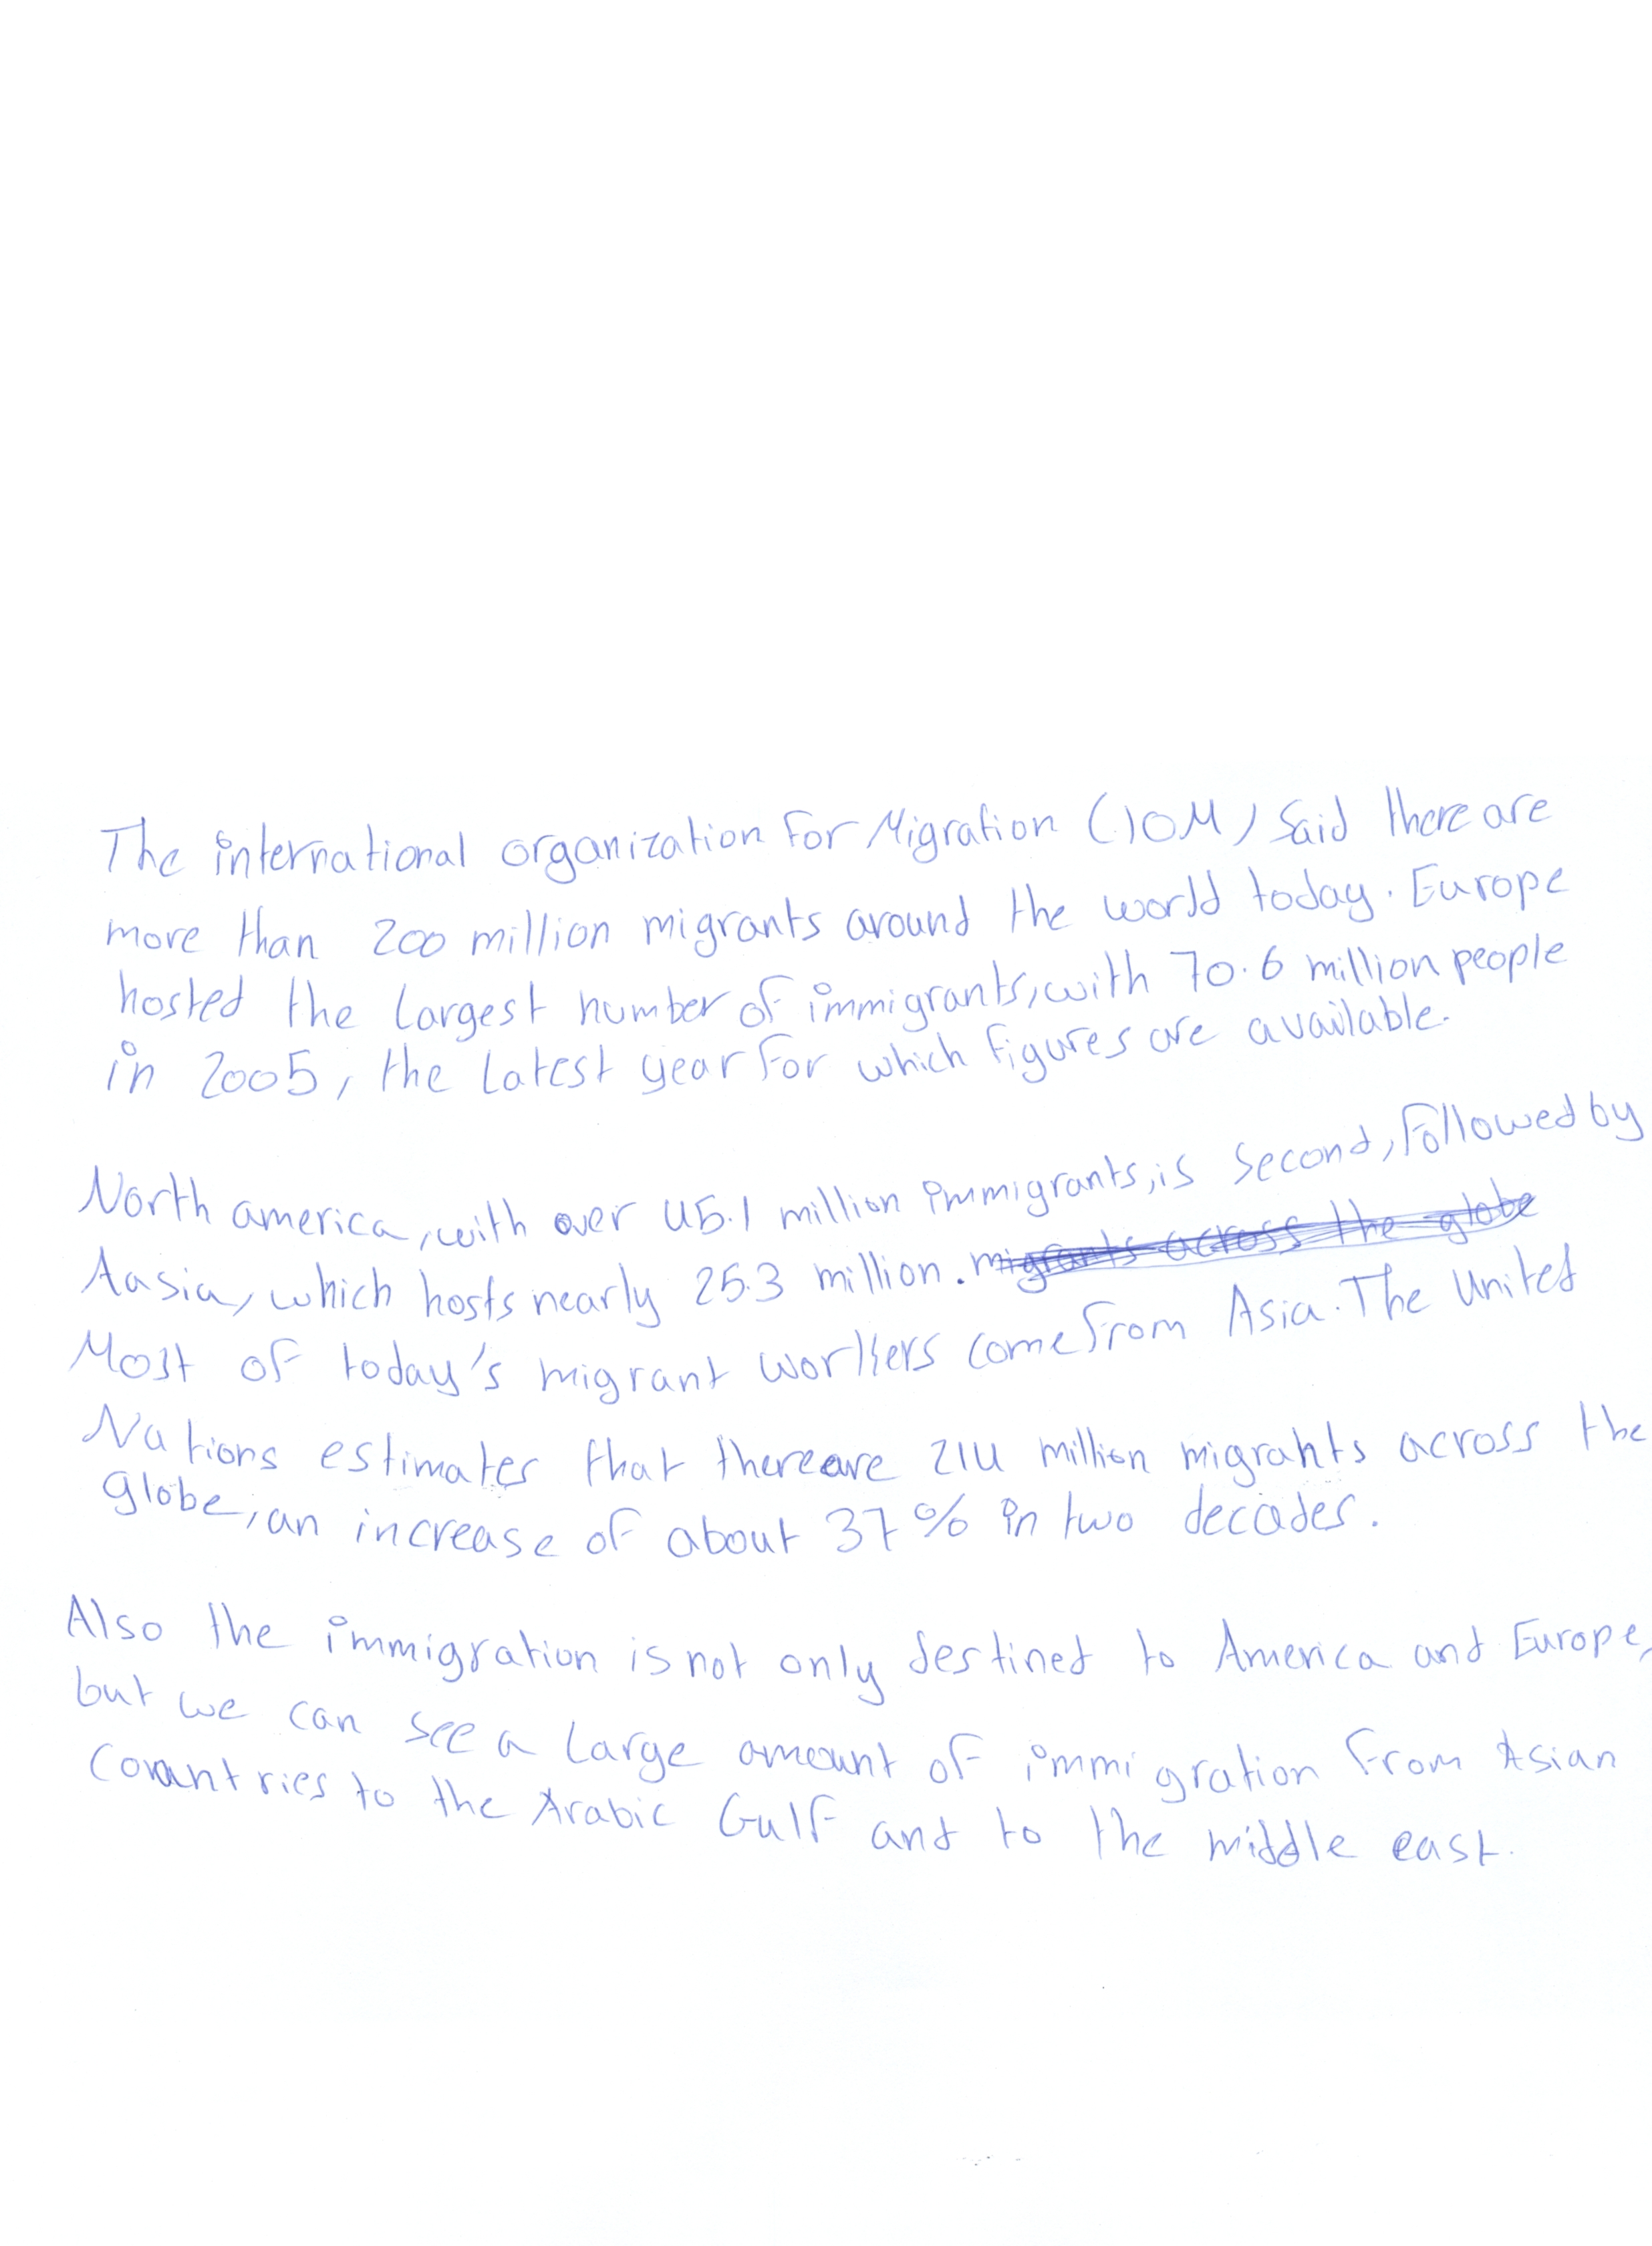 The international organization For Migration (IOM) Said there are
more than 200 million migrants around the world today. Europe
hosted the largest number of immigrants, with 70.6 million people
in 2005, the latest year for which figures are available.
North america, with over 45.1 million immigrants, is second, followed by
Aasia, which hosts nearly 25.3 million. migrants across the globe
Most of today's migrant workers come from Asia. The United
Nations estimates that there are 214 million migrants across the
globe, an increase of about 37% in two decades.
Also the immigration is not only destined to America and Europe,
but we can see a large amount of immigration from Asian
Countries to the Arabic Gulf and to the middle east.